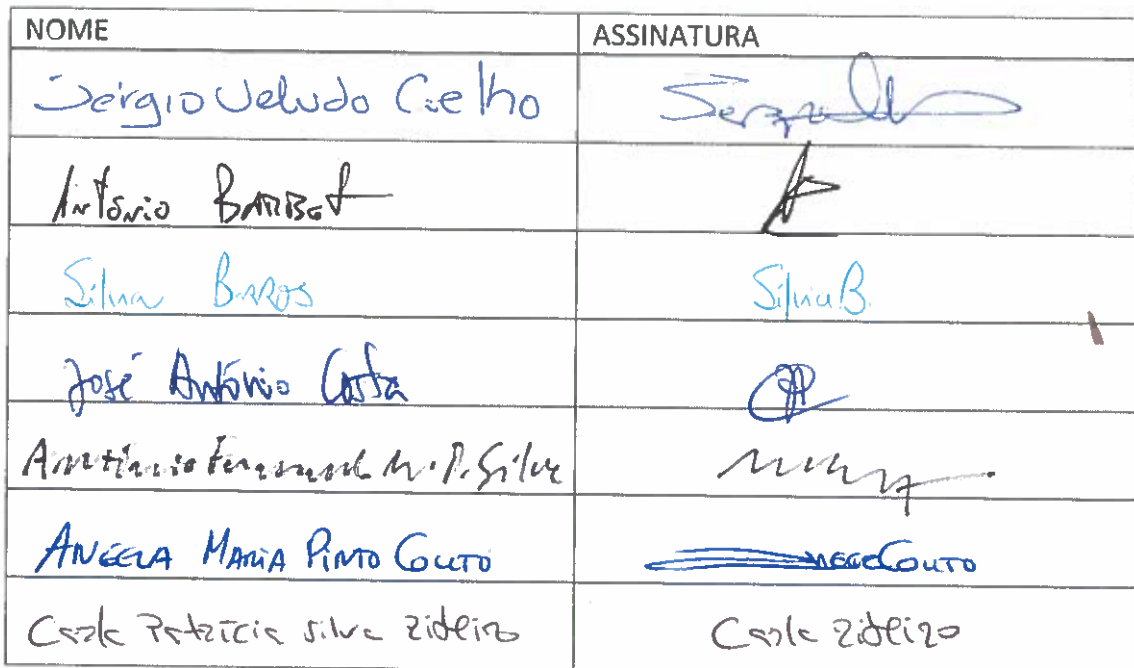 NOME ASSINATURA
Sérgio Veludo Coelho
António Barbot
Sílvia Barros Sílvia B.
José António Costa
António Fernando M. P. Silva
Angela Maria Pinto Couto Couto
Carla Patrícia Silva Ribeiro Carla Ribeiro